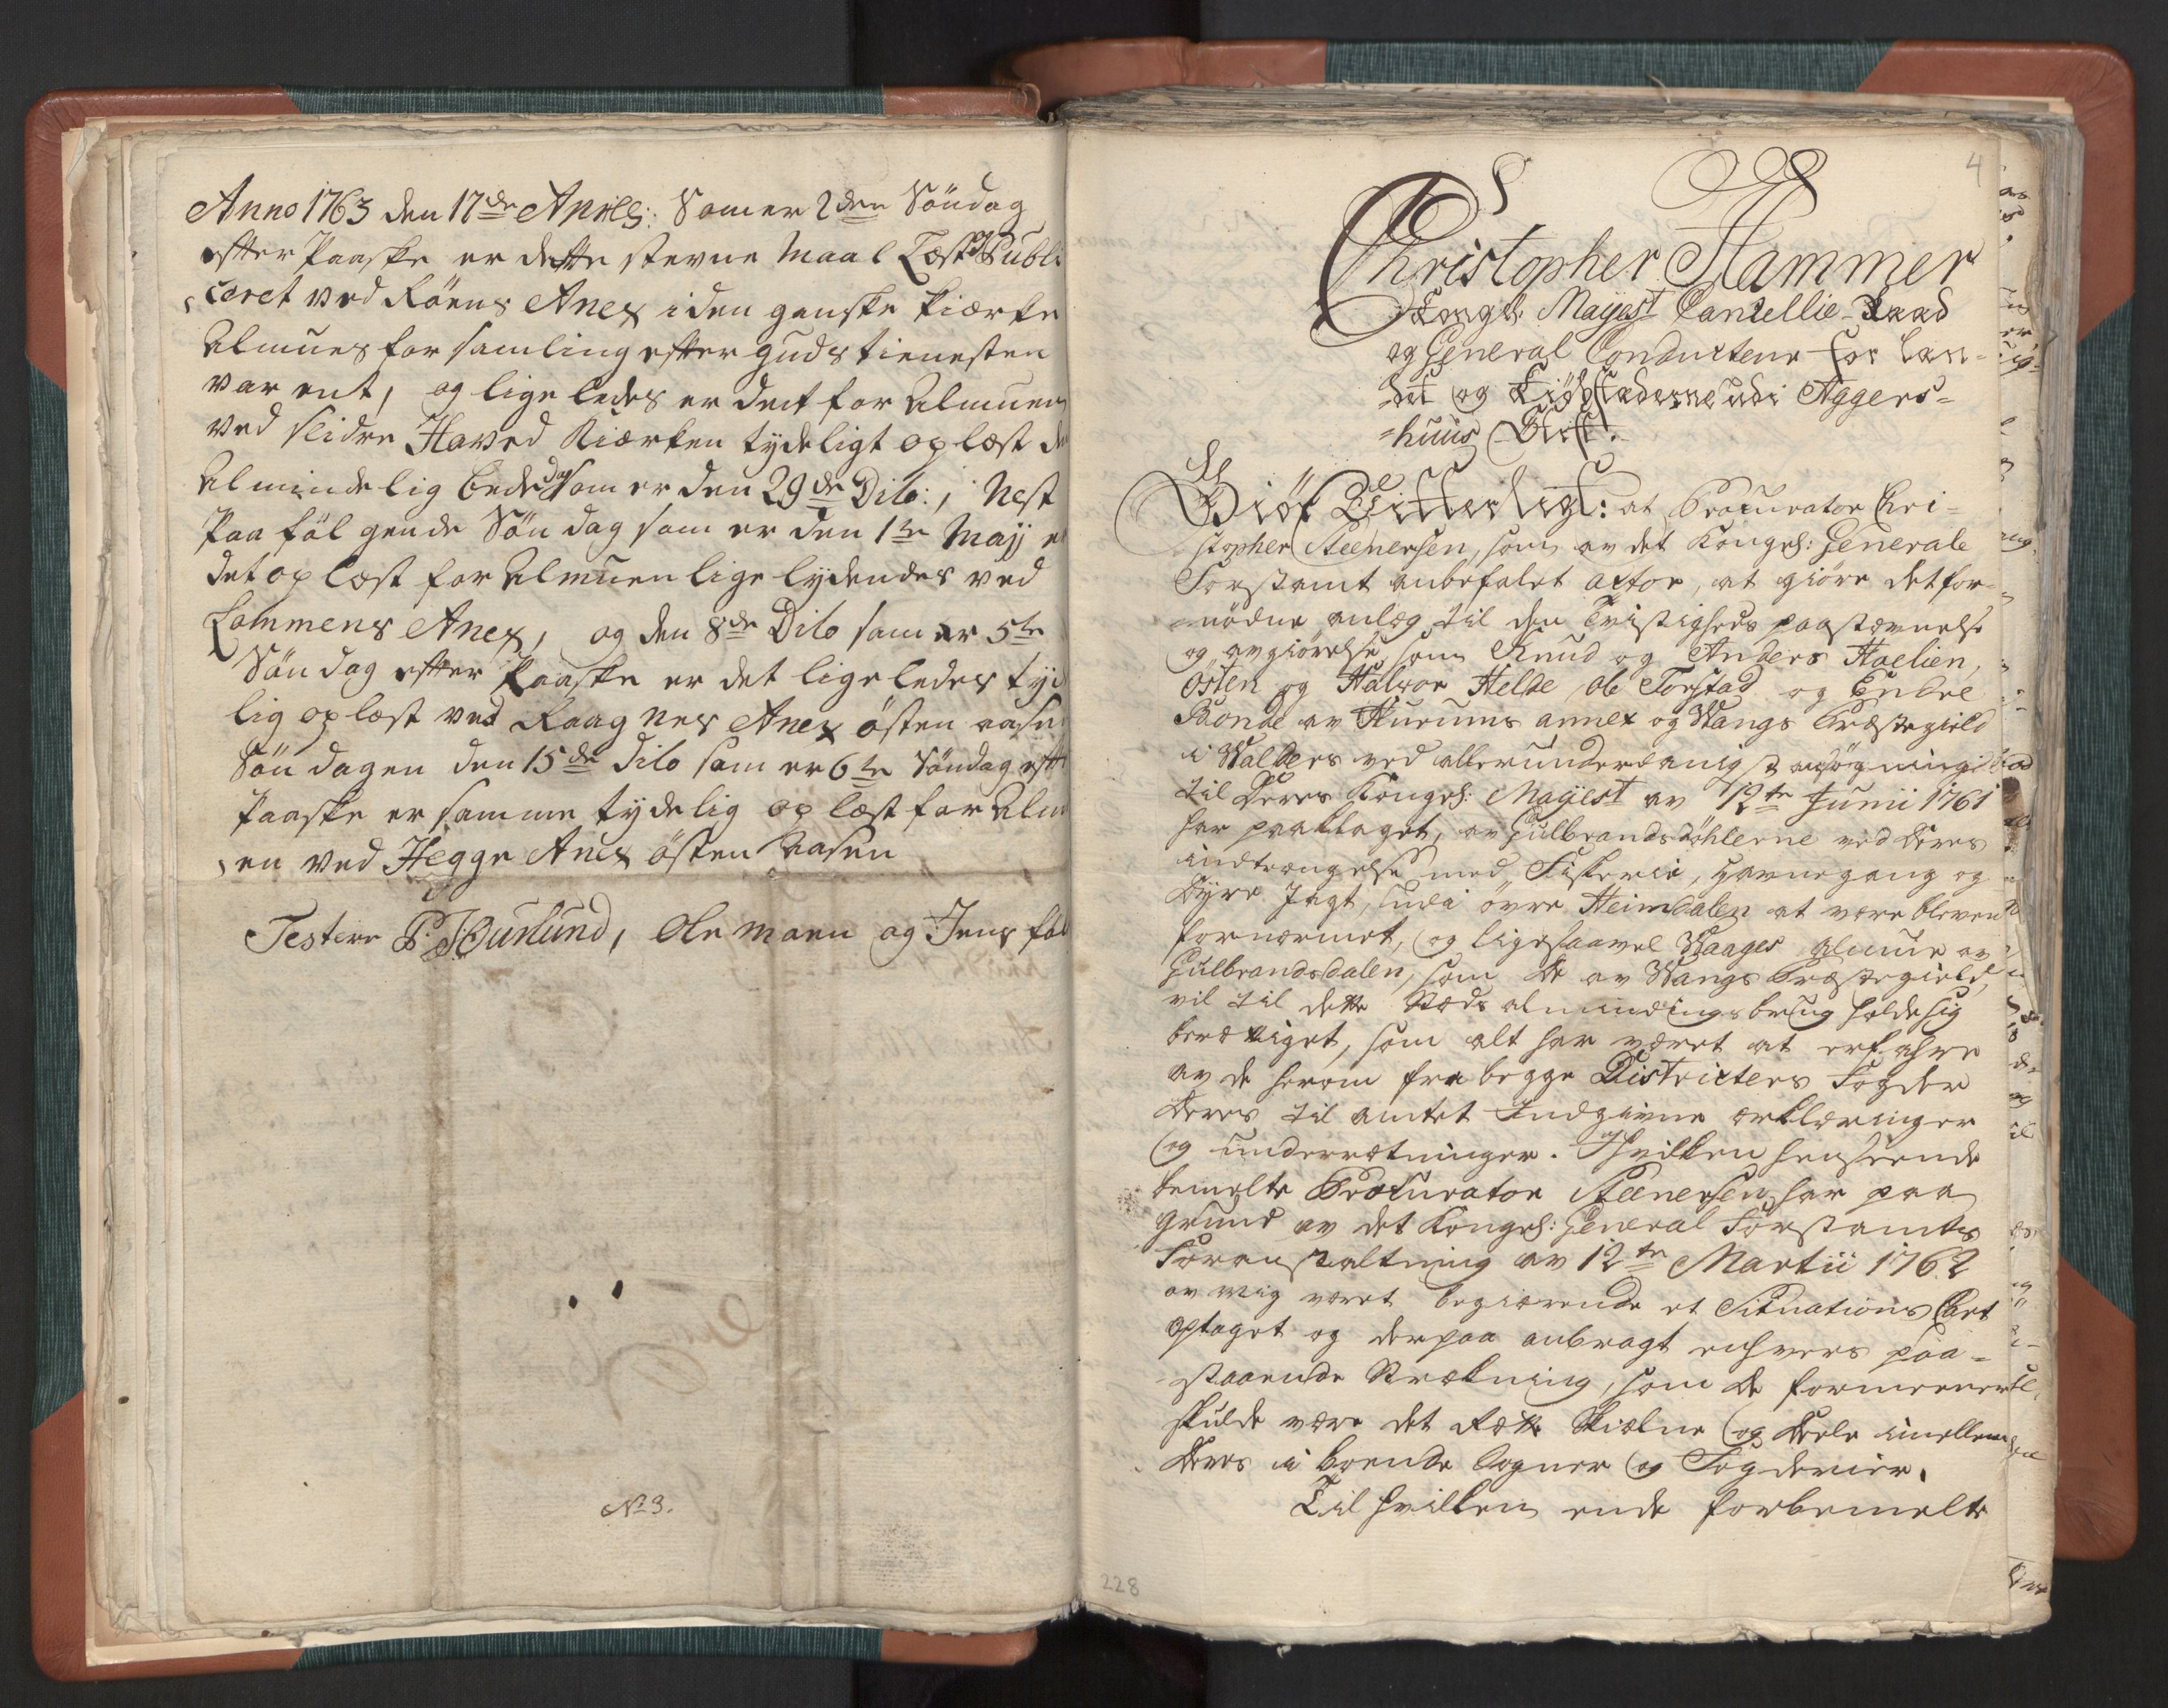 Anno 1763 den 17de Aprilj: Som er 2den Söndag
efter Paaske er dette stevne Maal Læst Publi
ceret ved Röens Anex i den ganske Kiærke
Almues forsamling efter Guds tienesten
var ent, og lige ledes er det for Almuen
ved Slidre Haved Kiærken tydeligt oplæst d
Almindelig bededag som er den 29de Dito:, Nest
Paa fölgende Söndag som er den 1te Maij e
det oplæst for Almuen lige lydendes ved
Lommens Anex, og den 8de Dito som er 5te
Söndag efter Paaske er det lige ledes tyd
lig oplæst ved Raagnes Anex östen aasen
Söndagen den 15de Dito som er 6te Söndag eft
Paaske er samme tydelig oplæst for Alm
en ved Hegge Anex östen Aasen
Testere Ole Moen og Jens
No 3.
4
Christopher Hammer
Kongl: Mayest Cancellie-Raad
og General Conducteur for Lan-
det og Kiöbstæderne udi Aggers-
huus Stift.
Giör Vitterligt: at Procurator Chri-
stopher Steenersen, som av det Kongel: Generale
Forstamt anbefalet actor, at giöre det for-
nödne anlæg til den Tvistigheds paastævnelse
og avgiörelse, som Knud og Anders Haelien,
Östen og Halvor Helde, Ole Torstad og Endre
Bonde av Hurums annex og Wangs Præstegield
i Walders ved allerunderdanigst ansögning
til Deres Kongel: Mayest av 12te Junii 1761
har paaklaget, av Gulbrandsdöhlerne ved deres
indtrængelse med Fiskerie, Havnegang og
Dyre Jagt, udi övre Heimdalen at være bleven
fornærmet, og ligesaavel Waages almue av
Gulbrandsdalen, som de av Wangs Præstegield,
vil til dette Stæds almindings brug holde sig
berættiget, som alt har været at erfahre
av de herom fra begge Districters Fogder
deres til amtet Indgivne erklæringer
og underrætninger. I hvilken henseende
bemelte Procurator Steenersen har paa
grund av det Kongel: General Forstamts
Foranstaltning av 12te Martii 1762
av mig været begiærende et Situations Cart
optaget og derpaa anbragt enhvers paa-
staaende Strækning, som de formeener
skulde være det rætte Skielne og Deele imellem
deres i boende Sogner og Fogderier.
Til hvilken ende forbemelte
228